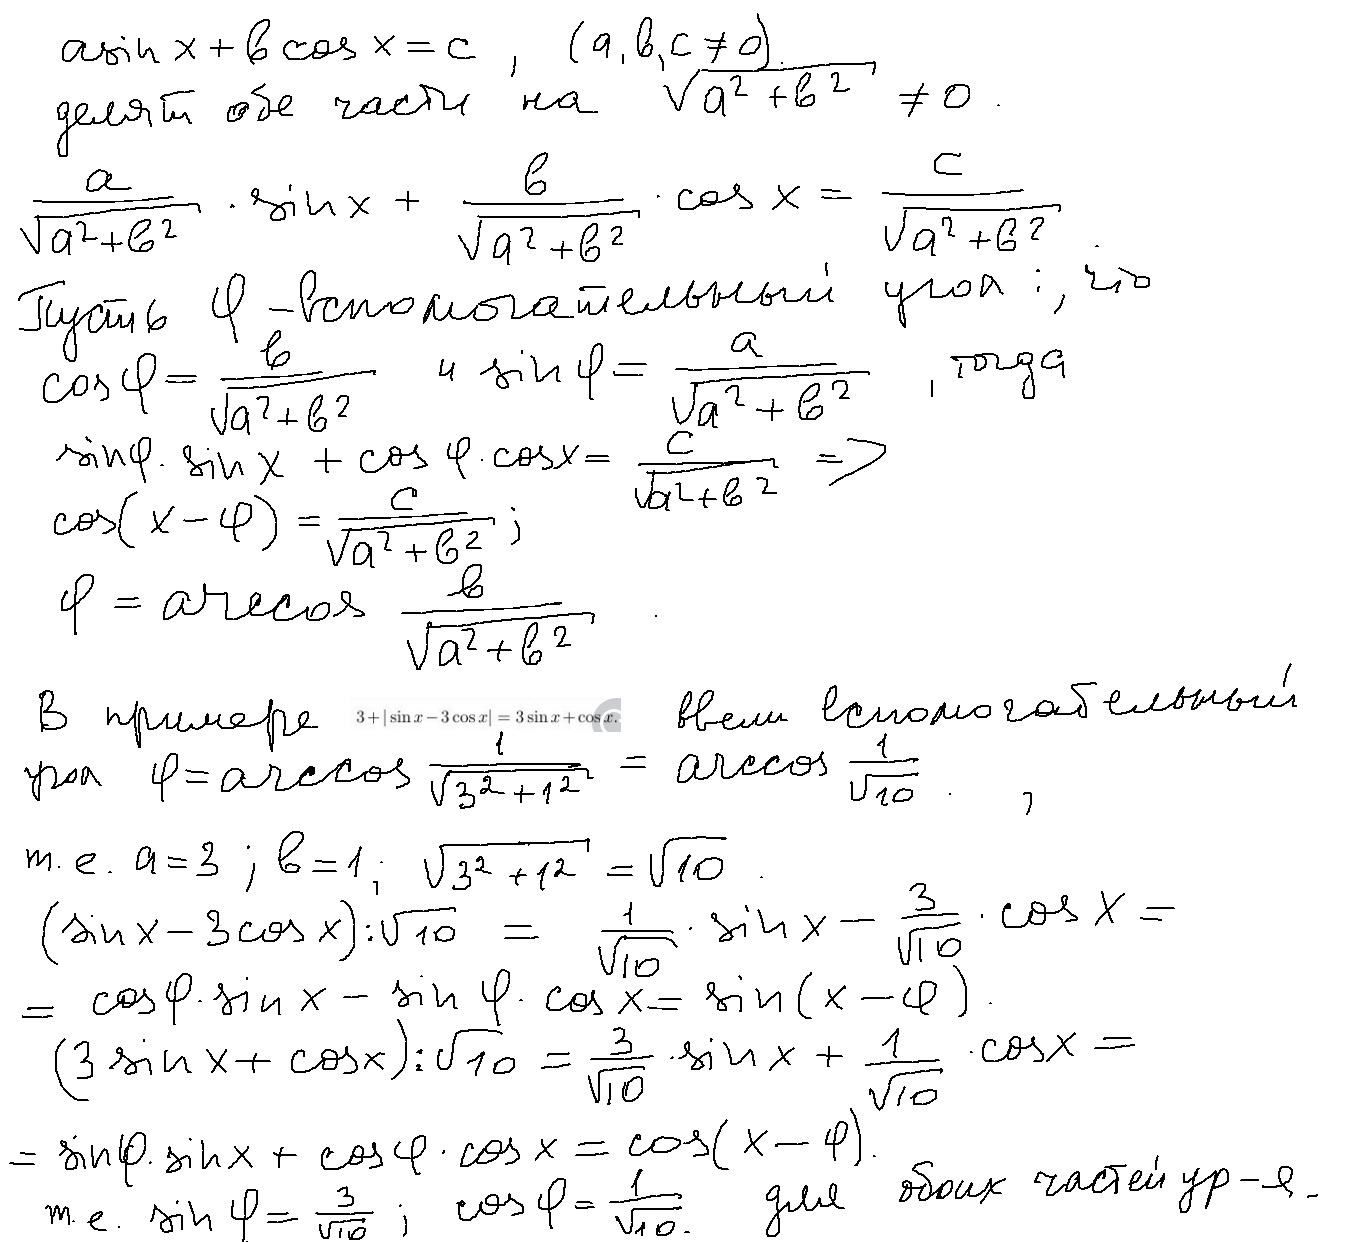 a sin x + в cos x = c, (a, в, c ≠ 0).
делят обе части на √(a² + в²) ≠ 0.
a/√(a²+в²) · sin x + в/√(a²+в²) · cos x = c/√(a²+в²)
Пусть φ – вспомогательный угол :, что
cos φ = в/√(a²+в²) и sin φ = a/√(a²+в²), тогда
sin φ · sin x + cos φ · cos x = c/√(a²+в²) =>
cos(x – φ) = c/√(a²+в²) ;
φ = arccos в/√(a²+в²) .
В примере 3+|sin x−3 cos x| = 3 sin x+cos x. ввели вспомогательный
угол φ = arccos 1/√(3²+1²) = arccos 1/√10 . ,
т.е. a = 3 ; в = 1 ; √(3²+1²) = √10 .
(sin x – 3 cos x) : √10 = 1/√10 · sin x – 3/√10 · cos x =
= cos φ · sin x – sin φ · cos x = sin(x – φ).
(3 sin x + cos x) : √10 = 3/√10 · sin x + 1/√10 · cos x =
= sin φ · sin x + cos φ · cos x = cos(x – φ).
т.е. sin φ = 3/√10 ; cos φ = 1/√10. для обоих частей ур-я.